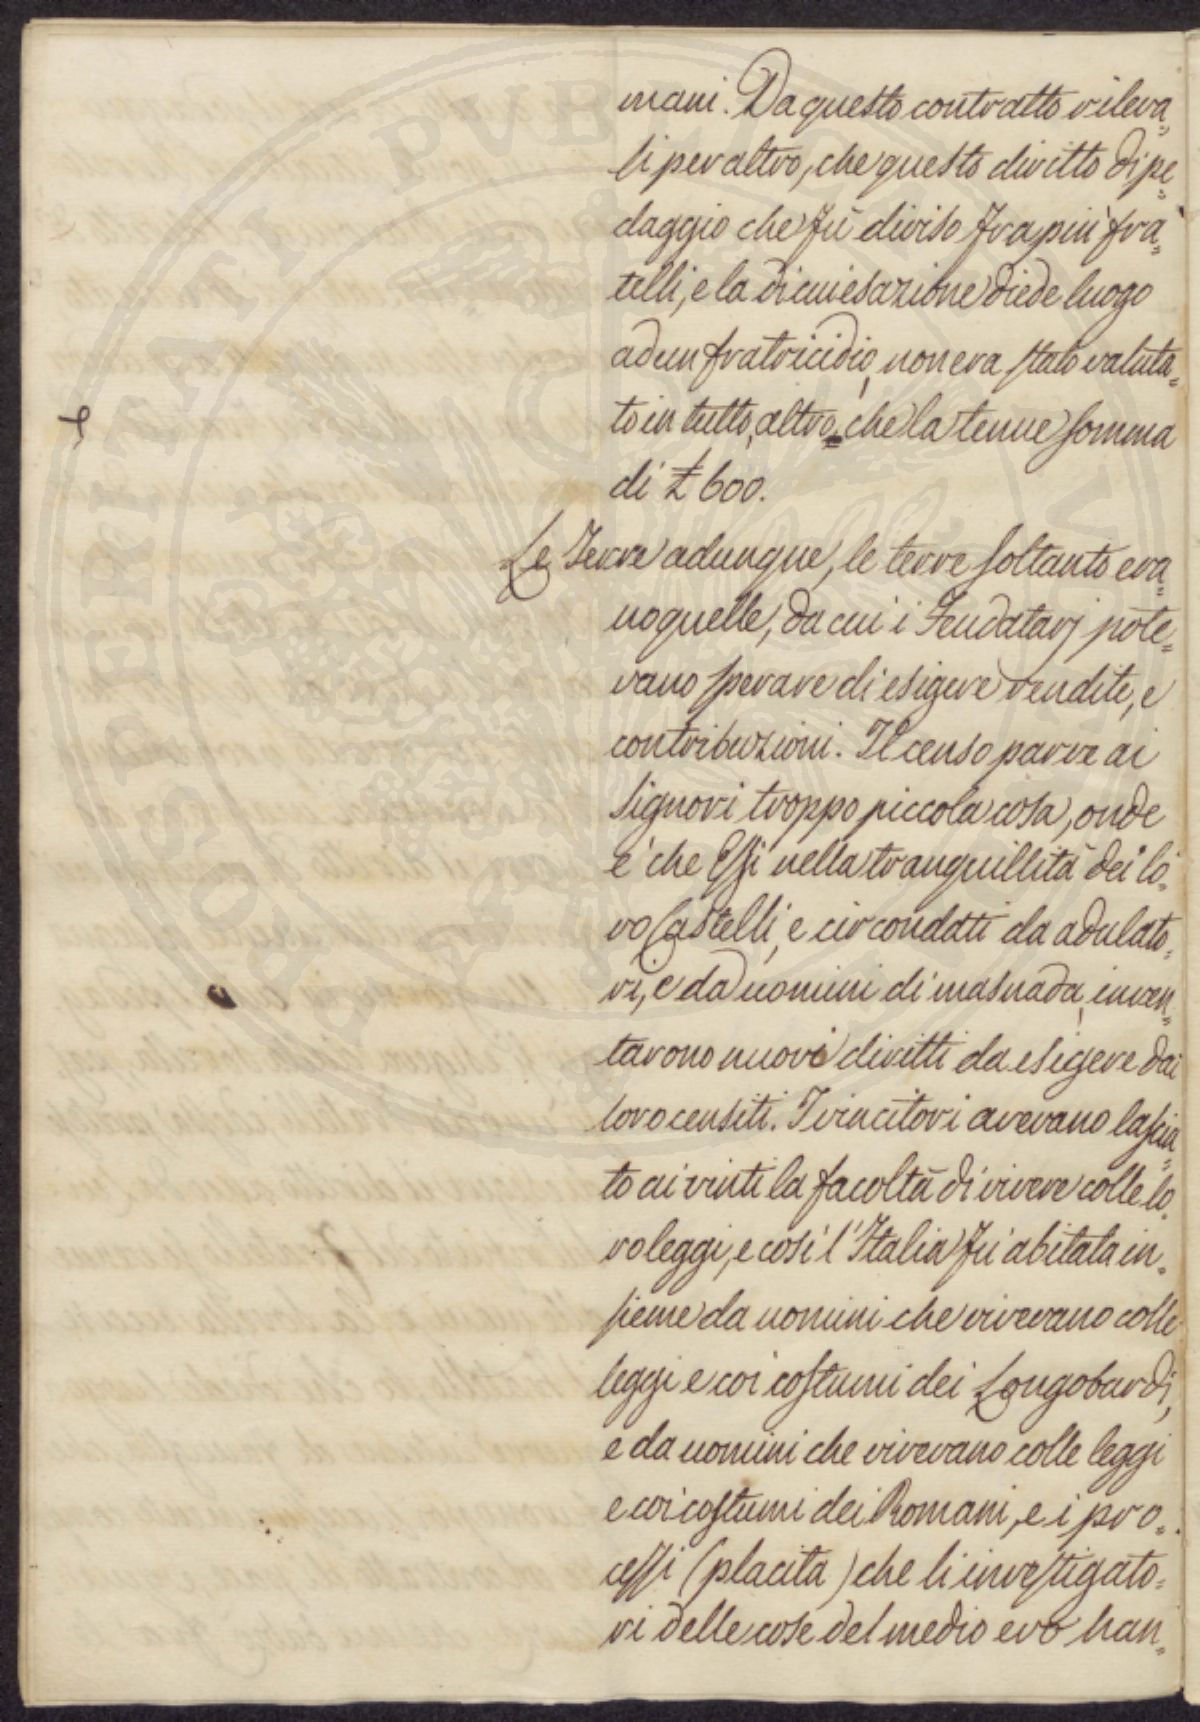 mani. Da questo contratto rileva=
si per altro, che questo diritto di pe=
daggio che fù diviso fra più fra=
telli, e la di cui esazione diede luogo
ad un fratricidio, non era stato valuta=
to in tutto, altro che la tenue somma
di £ 600.
Le Terre adunque, le terre soltanto era=
no quelle, da cui i Feudatarj pote=
vano sperare di esigere rendite, e
contribuzioni. Il censo parve ai
Signori troppo piccola cosa, onde
e' che Essi nella tranquillità dei lo=
ro Castelli, e circondati da adulato=
ri, e da uomini di masnada, inven=
tarono nuovi diritti da esigere dai
loro censiti. I vincitori avevano lascia=
to ai vinti la facoltà di vivere colle lo=
ro leggi, e così l'Italia fù abitata in=
sieme da uomini che vivevano colle
leggi e coi costumi dei Longobardi,
e da uomini che vivevano colle leggi
e coi costumi dei Romani, e i pro=
cessi (placita) che li investigato=
ri delle cose del medio evo han=
PROSPERITATI PVBLICAE